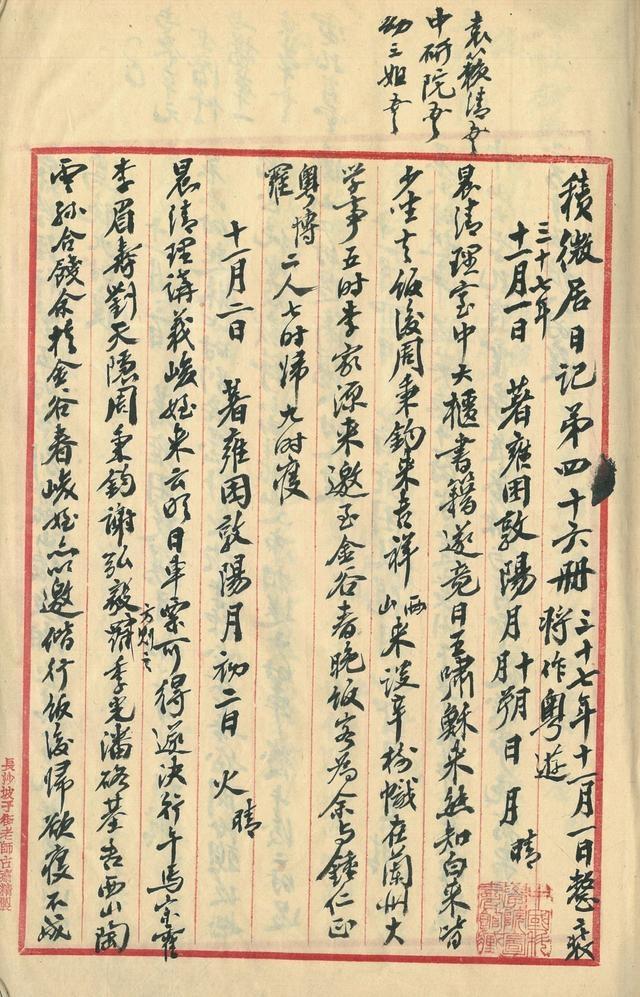 積微居日記第四十六冊 三十七年十一月一日整裝將作粵遊
三十七年
十一月一日 著雍困敦陽月十月朔日 月 晴
晨清理室中大櫃書籍遂竟日王嘯穌來熊知白來皆
少坐去飯後周秉鈞來言祥西山來談辛樹幟在蘭州大
學事五時李家源來邀至金谷春晚飯客為余與鍾仁正
羅粵博二人七時歸九時寢
十一月二日 著雍困敦陽月初二日 火 晴
晨清理講義峻姪來云明日車票可得遂決行午馬宗霍
李眉壽劉天隱周秉鈞謝弘毅方則之蹐季光潘碩基言西山陶
雲孫合餞余於金谷春峻姪亦邀偕行飯後歸欲寢不成
袁簌清
中研院
幼三姐
長沙坡子街老師古齋精製